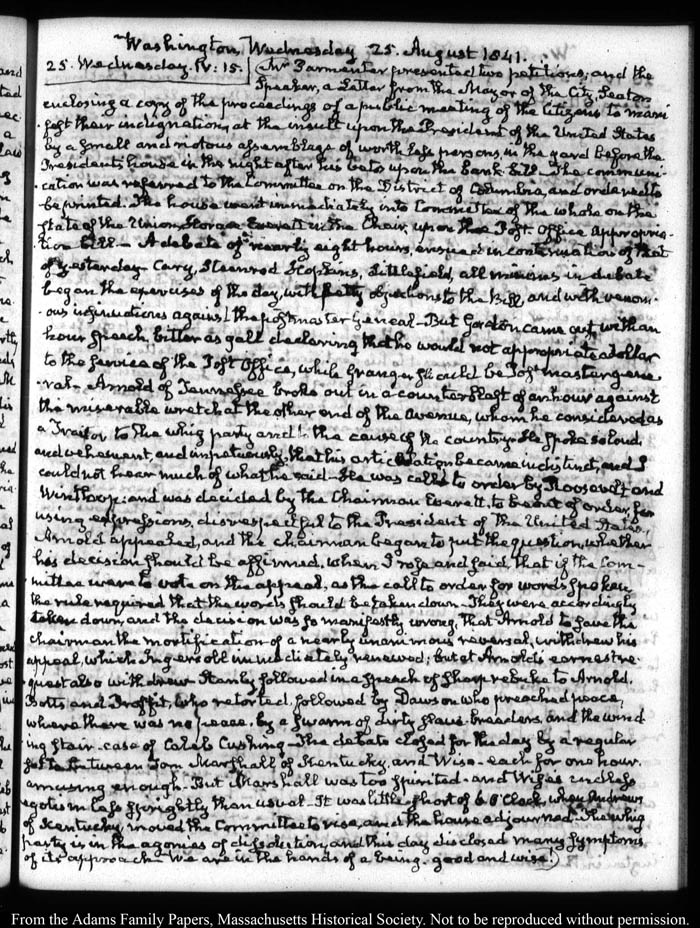 Washington, Wednesday 25. August 1841.
25. Wednesday. IV: 15. Mr Parmenter presented two petitions; and the
Speaker, a Letter from the Mayor of the City, Seaton
enclosing a copy of the proceedings of a public meeting of the Citizens to mani
fest their indignation, at the insult upon the President of the United States
by a small and riotous assemblage of worthless persons, in the yard before the
Presidents house in the night after his Veto upon the Bank bill. The communi
cation was referred to the Committee on the District of Columbia, and ordered to
be printed. The house went immediately into Committee of the whole on the
State of the Union, Horace Everett in the Chair, upon the Post-Office Appropria-
tion bill. A debate of nearly eight hours, ensued in continuation of that
of yesterday. Cary, Steenrod, Hopkins, Littlefield, all minims in debate
began the exercises of the day, with petty objections to the Bill, and with venom-
ous insinuations against the postmaster General. But Gordon came out with an
hour speech, bitter as gall declaring that he would not appropriate a dollar
to the service of the Post Office, while Granger should be Post master gene
ral. Arnold of Tennessee broke out in a counterblast of an hour against
the miserable wretch at the other end of the Avenue, whom he considered as
a Traitor to the whig party and to the cause of the country. He spoke so loud,
and vehement, and impetuously, that his articulation became indistinct, and I
could not hear much of what he said. He was called to order by Roosevelt and
Winthrop; and was decided by the Chairman Everett, to be out of order, for
using expressions, disrespectful to the President of the United States.
Arnold appealed, and the chairman began to put the question, whether
his decision should be affirmed, when I rose and said, that if the Com-
mittee were to vote on the appeal, as the call to order for words spoken
the rule required that the words should be taken down. They were accordingly
taken down, and the decision was so manifestly wrong, that Arnold to save the
chairman the mortification of a nearly unanimous reversal, withdrew his
appeal, which Ingersoll immediately renewed; but at Arnold's earnest re
quest also withdrew. Stanly followed in a speech of sharp rebuke to Arnold,
Botts and Proffit, who retorted, followed by Dawson who preached peace,
where there was no peace, by a swarm of dirty slave-breeders, and the wind
ing stair-case of Caleb Cushing. The debate closed for the day by a regular
between Tom Marshall of Kentucky, and Wise. each for one hour.
amusing enough. But Marshall was too spirited and Wise's reckless
egotism less sprightly than usual. It was little short of 6 O'Clock, when Andrews
of Kentucky moved the Committee to rise, and the house adjourned. The whig
party is in the agonies of dissolution, and this day disclosed many symptoms
of its approach. We are in the hands of a being. good and wise.
From the Adams Family Papers, Massachusetts Historical Society. Not to be reproduced without permission.